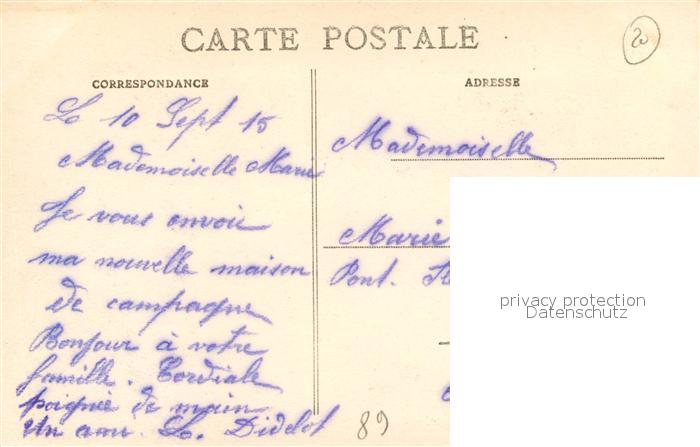 CARTE POSTALE
20
CORRESPONDANCE
ADRESSE
Le 10 Sept 15
Mademoiselle Marie
Je vous envoie
ma nouvelle maison
de campagne
Bonjour à votre
famille. Cordiale
poignée de main
Un ami L. Didelot
Mademoiselle
Marie
Pont.
privacy protection
Datenschutz
89